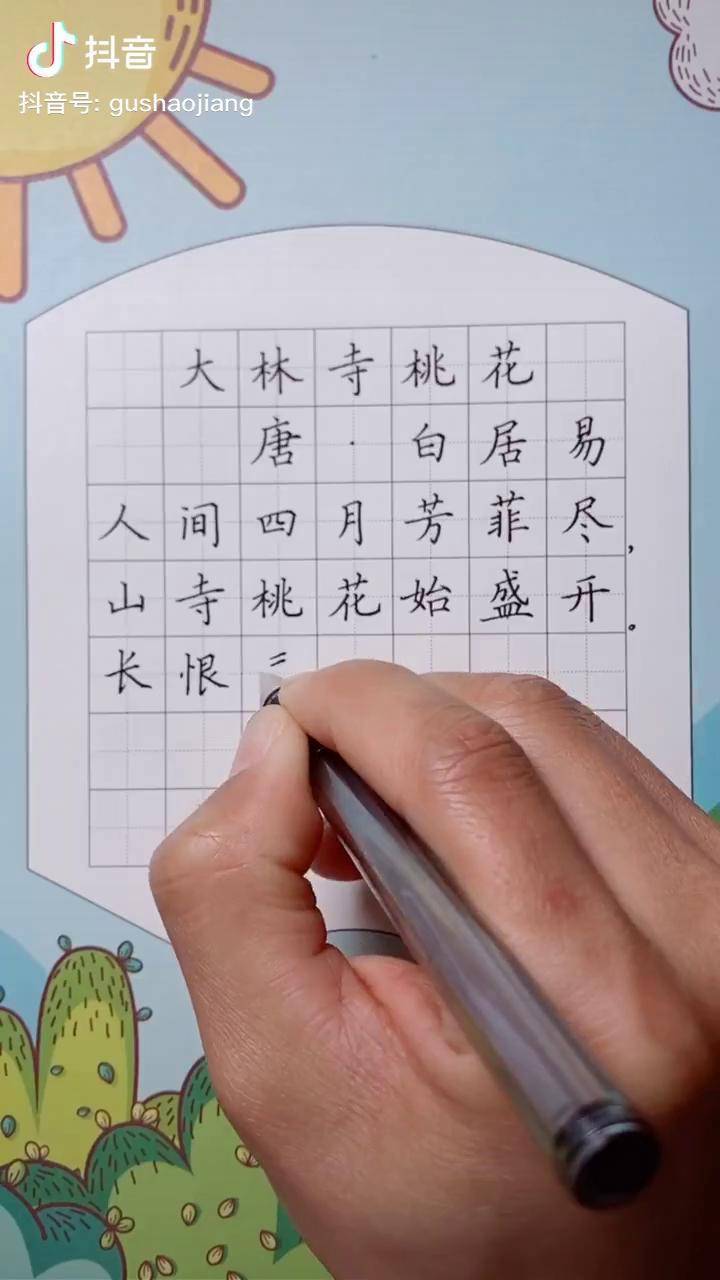 抖音
抖音号: gushaojiang
大林寺桃花
唐·白居易
人间四月芳菲尽，
山寺桃花始盛开。
长恨